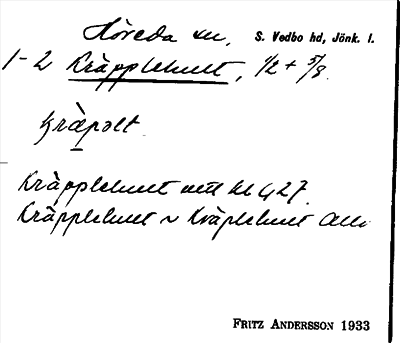 Höreda sn. S. Vedbo hd, Jönk. l.
1-2 Kräpplehult, 1/2 + 5/8.
kräpəlt
Kräpplehult
Kräpplehult ~ Kräplehult Allm
FRITZ ANDERSSON 1933